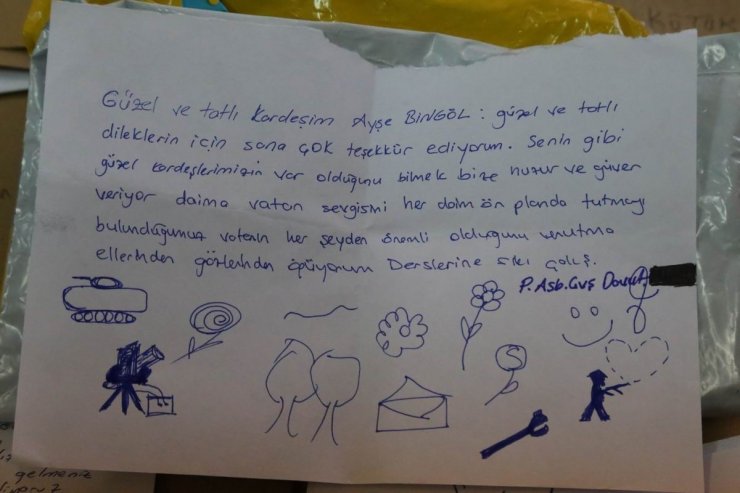 Güzel ve tatlı Kardeşim Ayşe BİNGÖL : güzel ve tatlı
dileklerin için sana ÇOK teşekkür ediyorum. Senin gibi
güzel kardeşlerimizin var olduğunu bilmek bize huzur ve güven
veriyor daima vatan sevgisini her daim ön planda tutmay
bulunduğumuz vatanın her şeyden önemli olduğunu unutma
ellerinden gözlerinden öpüyorum Derslerine sıkı çalış.
P. Asb. Çvş Davut
gelmeniz